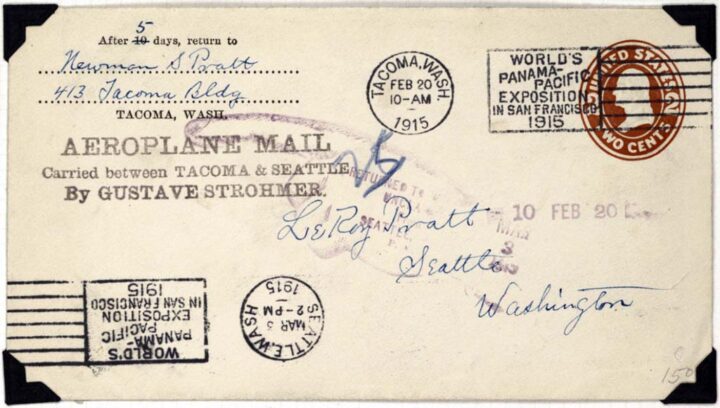 5
After 10 days, return to
Newman S Pratt
413 Tacoma Bldg
TACOMA, WASH.
TACOMA, WASH.
FEB 20
10-AM
1915
WORLD'S
PANAMA-
PACIFIC
EXPOSITION
IN SAN FRANCISCO
1915
UNITED STATES
2 2
TWO CENTS
AEROPLANE MAIL
Carried between TACOMA & SEATTLE
By GUSTAVE STROHMER.
RETURNED TO
SEATTLE
10 FEB 20
MAR
3
LeRoy Pratt
Seattle
Washington
WORLD'S
PANAMA-
PACIFIC
EXPOSITION
IN SAN FRANCISCO
1915
SEATTLE, WASH
MAR 3
2-PM
1915
150